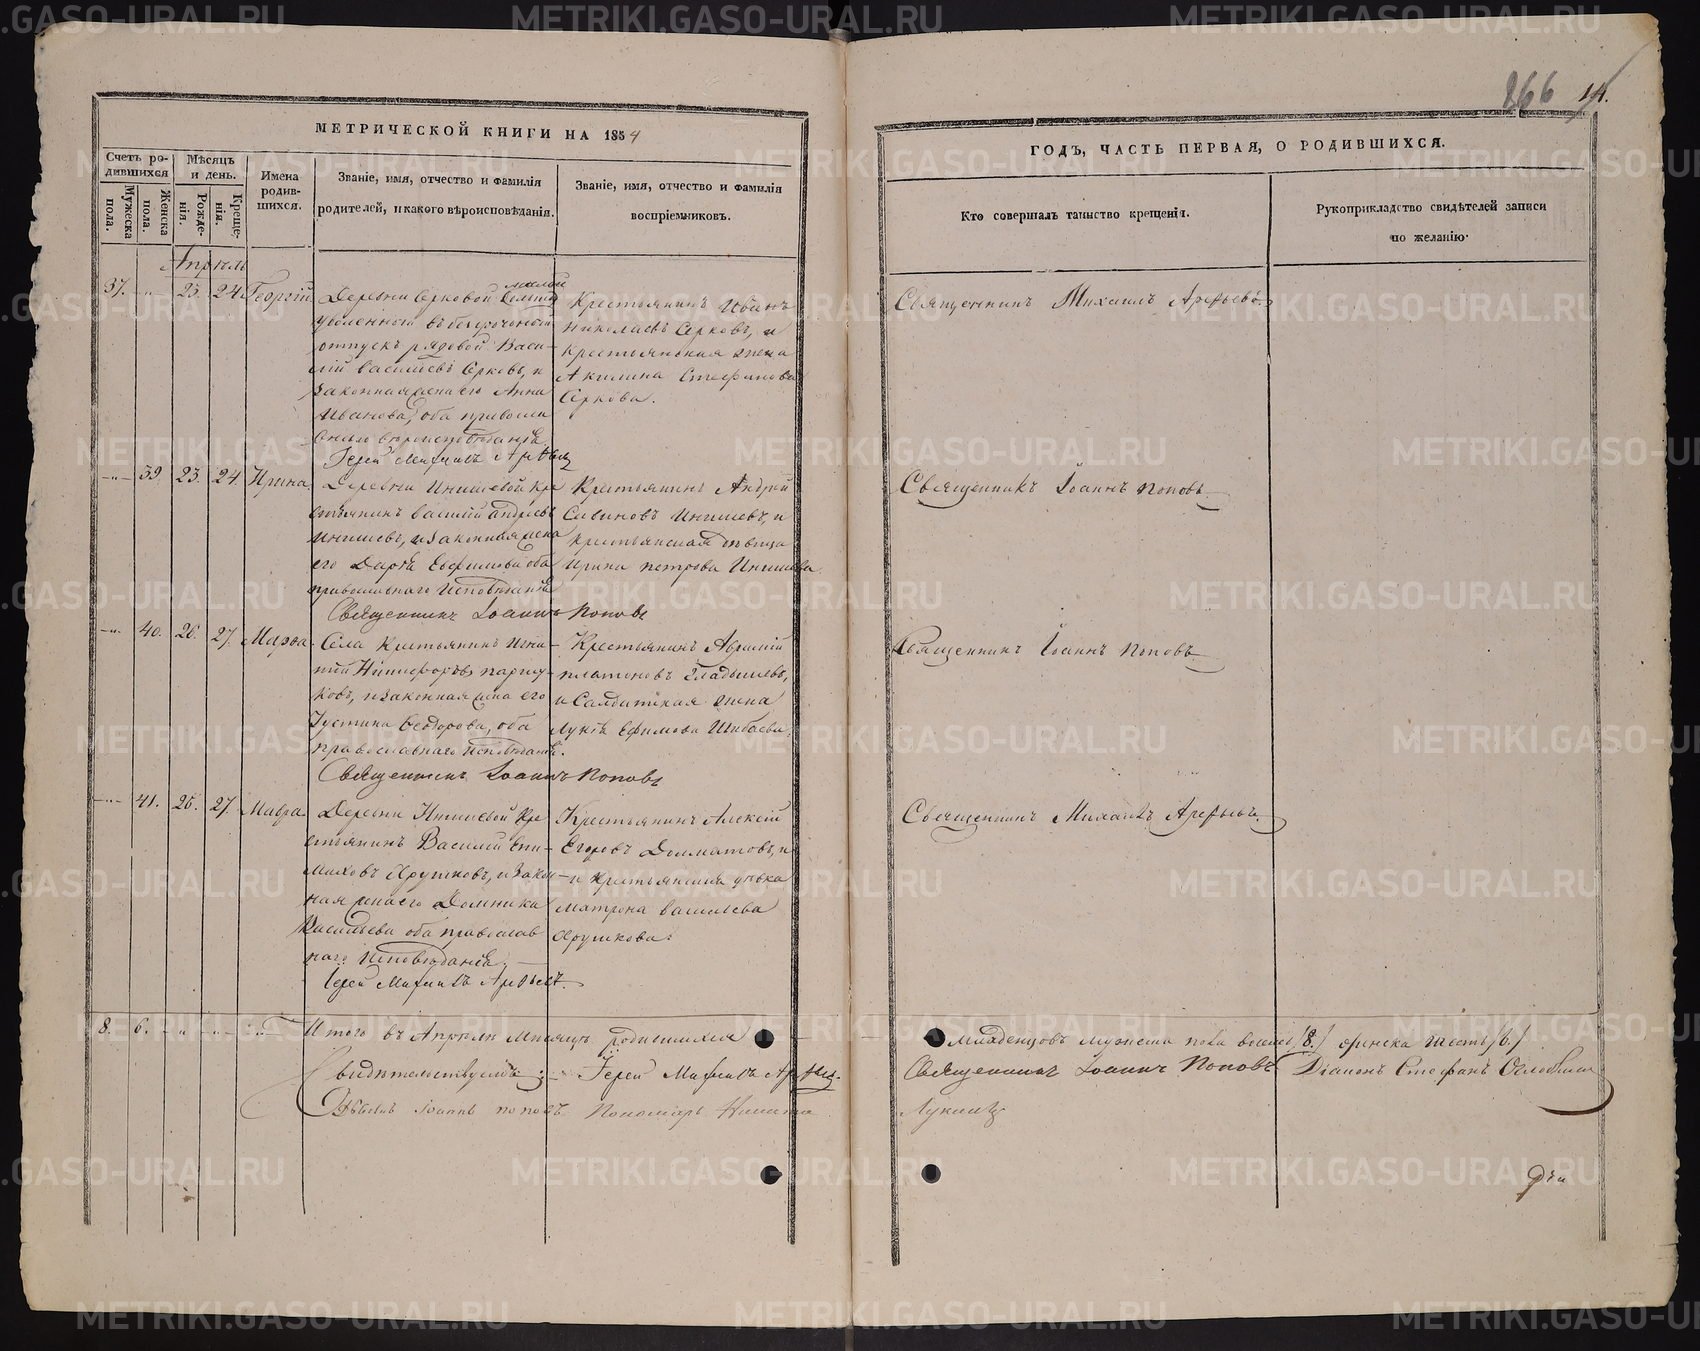 266 14.
МЕТРИЧЕСКОЙ КНИГИ НА 1854
ГОДЪ, ЧАСТЬ ПЕРВАЯ, О РОДИВШИХСЯ.
Счетъ родившихся
Мужеска пола.
Женска пола.
Мѣсяцъ и день.
Рожденія.
Крещенія.
Имена родившихся.
Званіе, имя, отчество и фамилія
родителей, и какого вѣроисповѣданія.
Званіе, имя, отчество и фамилія
воспріемниковъ.
Кто совершалъ таинство крещенія.
Рукоприкладство свидѣтелей записи
по желанію.
Апрѣль
37. 23. 24 Георгій
Деревни Серковой
уволенный въ безсрочный
отпускъ рядовой Васи-
лій Васильевъ Серковъ, и
законная жена его Анна
Иванова, оба православ
наго вѣроисповѣданія
Іерей Михаилъ Арефьевъ
Крестьянинъ Иванъ
Николаевъ Серковъ, и
крестьянская жена
Акилина Стефанова
Серкова.
Священникъ Михаилъ Арефьевъ.
39. 23. 24. Ирина
Деревни Иншевой кре
стьянинъ Василій Андреевъ
и законная жена
его Дарья Евфимова оба
православнаго исповѣданія
Священникъ Іоаннъ Поповъ
Крестьянинъ Андрей
Савиновъ
крестьянская дѣвица
Ирина Петрова
Священникъ Іоаннъ Поповъ
40. 26. 27. Марѳа
Села Крестьянинъ Игна-
тій Никифоровъ
ковъ, и законная жена его
Іустина Ѳеодорова, оба
православнаго исповѣданія.
Священникъ Іоаннъ Поповъ
Крестьянинъ Авраамій
Платоновъ Гладышевъ,
и Солдатская жена
Лукія Ефимова Шибаева.
Священникъ Іоаннъ Поповъ
41. 26. 27. Мавра
Деревни Кре
стьянинъ Василій Епи-
маховъ Хрушковъ, и закон
ная жена его Домника
Васильева оба православ
наго исповѣданія.
Іерей Михаилъ Арефьевъ.
Крестьянинъ Алексій
Егоровъ Долматовъ, и
крестьянская дѣвка
Матрона Васильева
Хрушкова.
Священникъ Михаилъ Арефьевъ.
8. 6. Итого въ Апрѣлѣ мѣсяцѣ родившихся
младенцовъ мужеска пола восемь /8./ женска шесть /6./
Свидѣтельствуемъ: Іерей Михаилъ Арефьевъ.
Священникъ Іоаннъ Поповъ Діаконъ Стефанъ
Іоаннъ Поповъ Пономарь Никита
Лукинъ